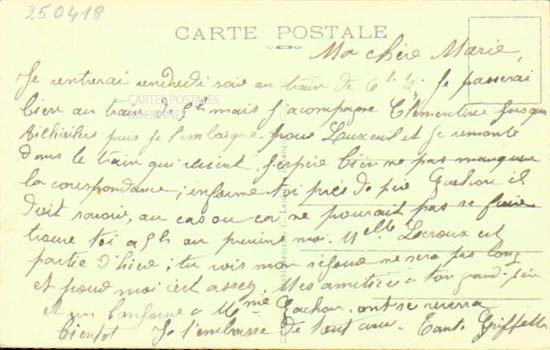 250418
CARTE POSTALE
Ma chère Marie,
Je rentrerai vendredi soir au train de 6h ½. Je passerai
bien au train de 5h mais j'acompagne Clémentine jusqu'a
puis je l'embarque pour Luxeuil et je remonte
dans le train qui vient. J'espère bien ne pas manquer
la corespondance; informe toi près de père Gachon il
doit savoir, au cas ou ça ne pourait pas se faire
trouve toi a 5h au premier moi. Melle Lecroux est
partie d'hier; tu vois mon séjour ne sera pas long
et pour moi c'est assez. Mes amitiés a ton grand-père
et un bonjour a Mme Gachon. ont se reverra
bientot Je t'embrasse de tout cœur. Tante Griffette
CARTES POSTALES
ANCIENNES